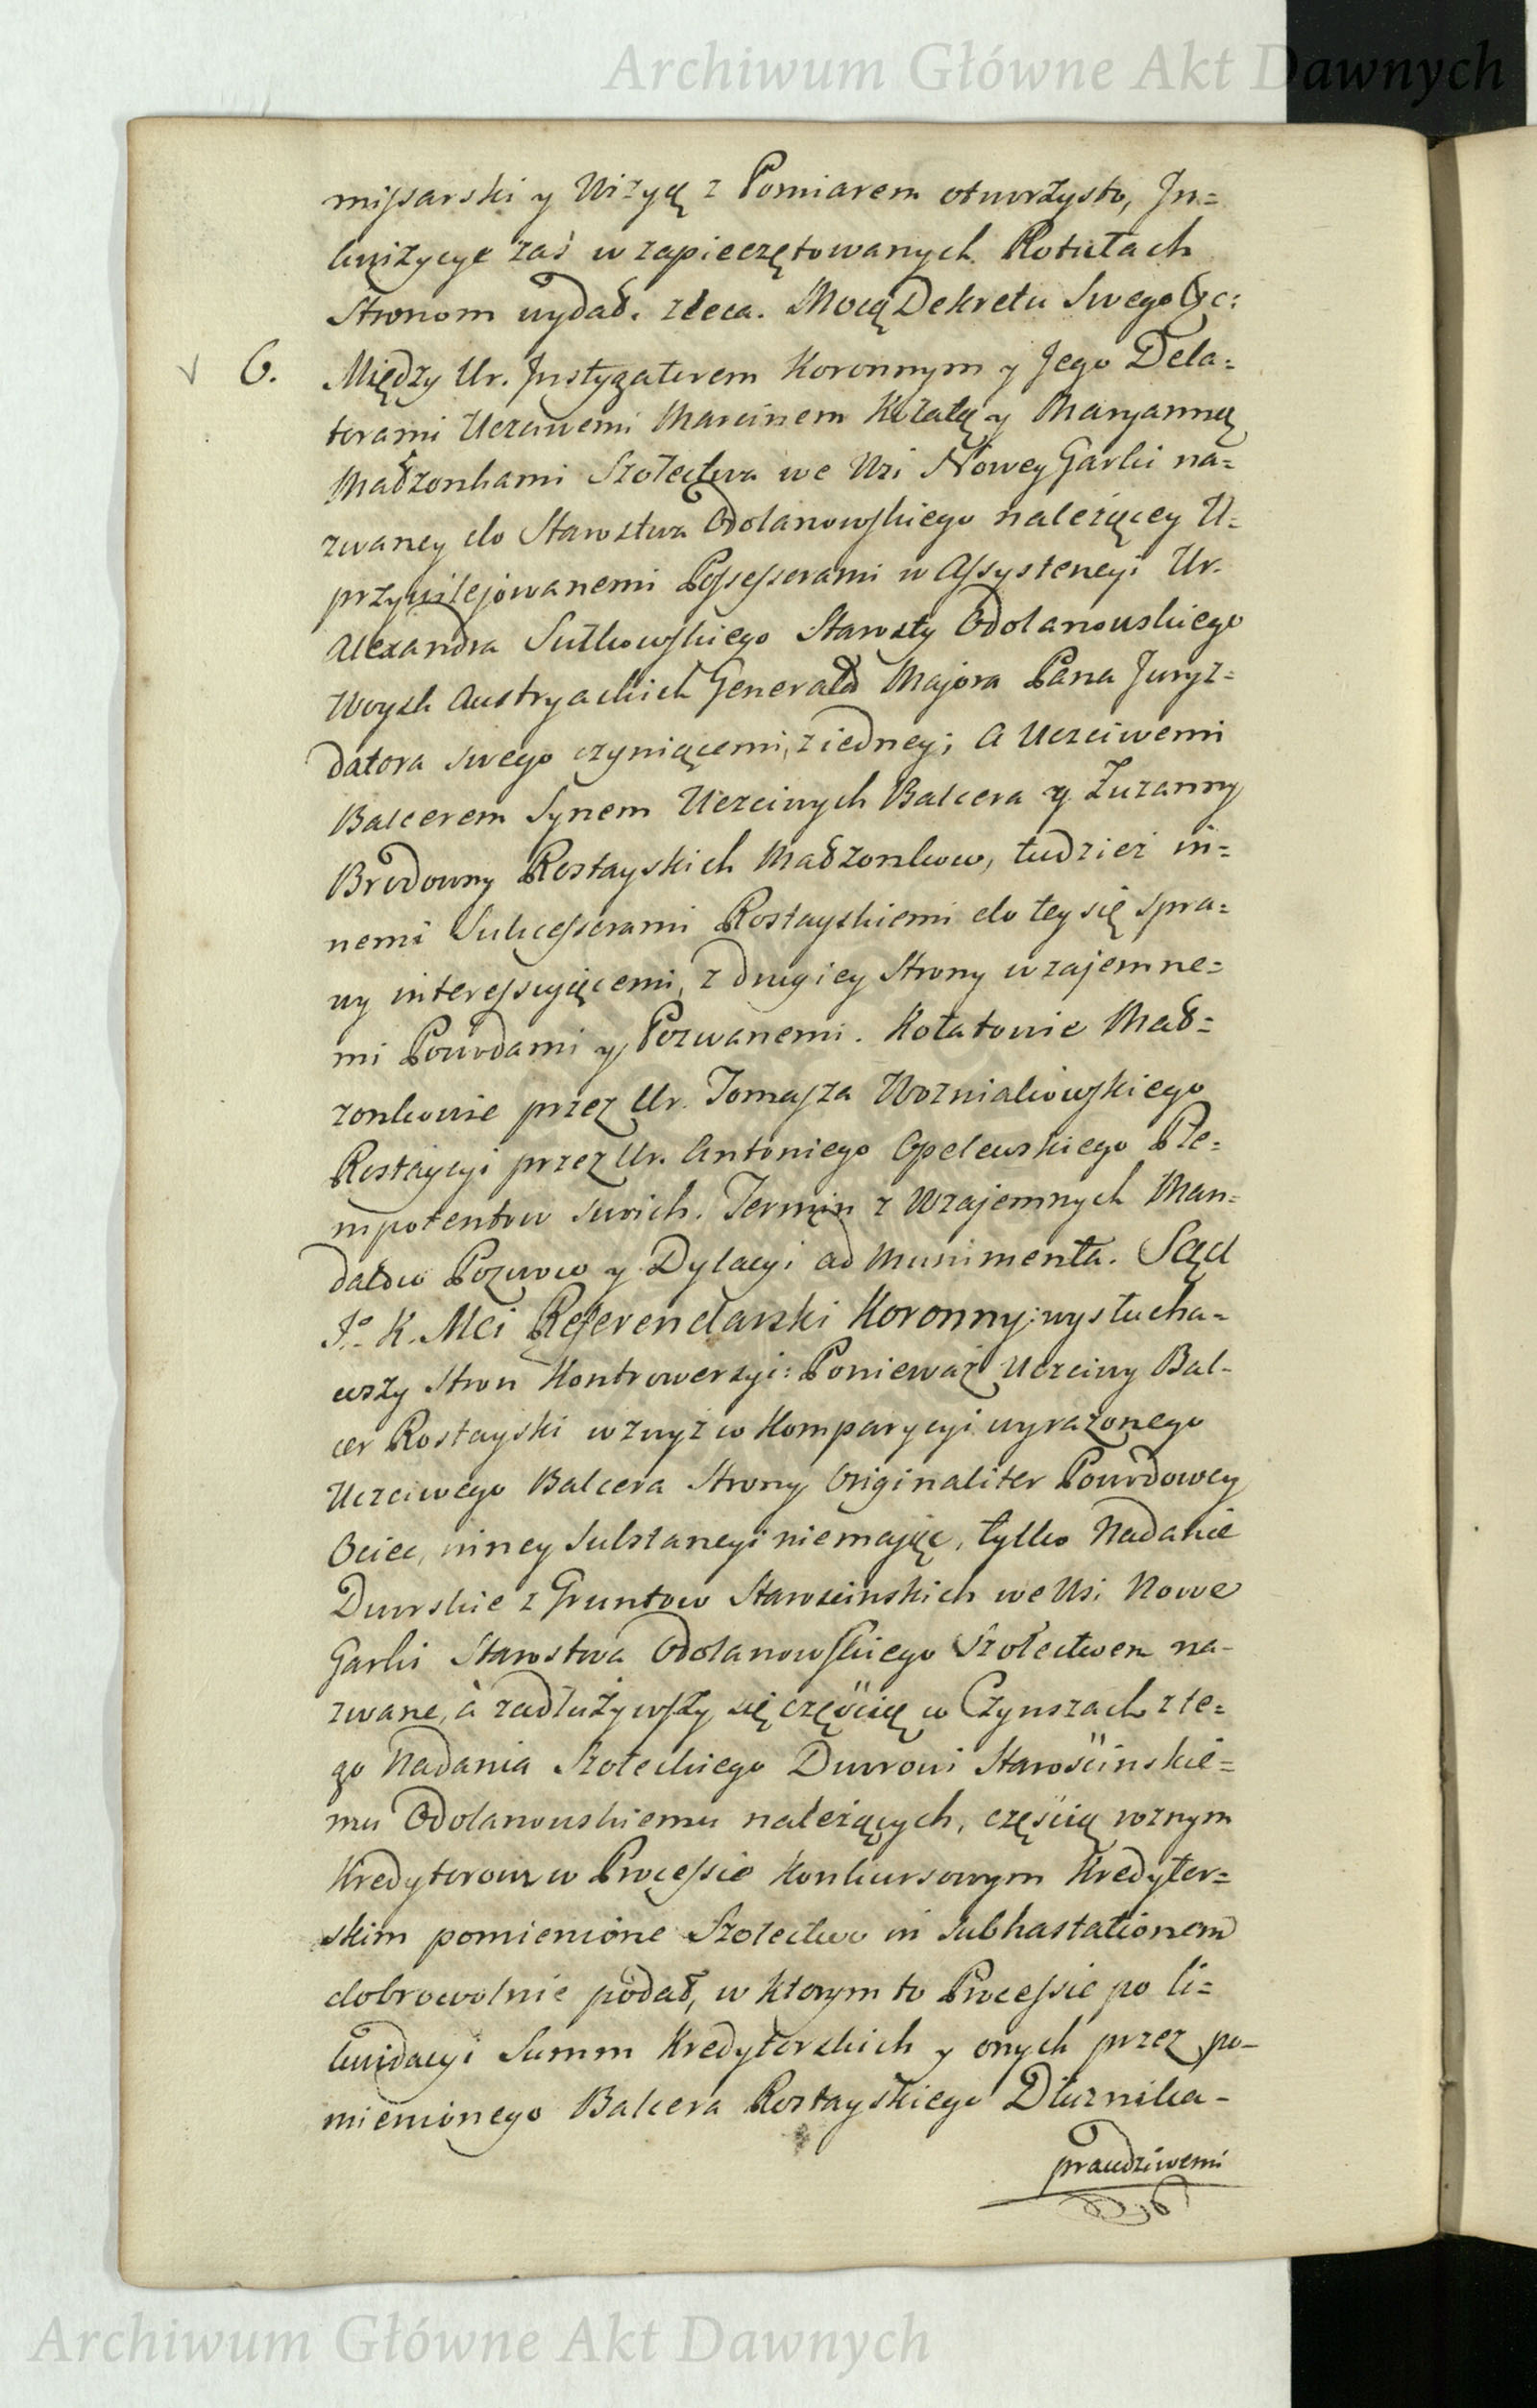 Archiwum Główne Akt Dawnych
missarski y Wizyą z Pomiarem otworzysto, In=
kwizycye zaś w zapieczętowanych Rotułach
Stronom wydał. zleca. Mocą Dekretu Swego &c:
6. Między Ur. Instygatorem Koronnym y Jego Dela=
torami Uczciwemi Marcinem Kołatą y Maryanną
Małżonkami Szołectwa we Wsi Nowey Garki na=
zwaney do Starostwa Odolanowskiego należącey U=
przywilejowanemi Possessorami w Assystencyi Ur.
Alexandra Sułkowskiego Starosty Odolanowskiego
Woysk Austryackich Generała Majora Pana Juryz=
datora swego czyniącemi, z iedney; a Uczciwemi
Balcerem Synem Uczciwych Balcera y Zuzanny
Brodowny Rostayskich Małżonkow, tudzież in=
nemi Sukcessorami Rostayskiemi do tey się spra=
wy interessuiącemi, z drugiey Strony wzajemne=
mi Powodami y Pozwanemi. Kołatowie Mał=
żonkowie przez Ur. Tomasza Wozniakowskiego
Rostayscyi przez Ur. Antoniego Opelewskiego Ple=
nipotentow swoich. Termin z Wzajemnych Man=
datow Pozwow y Dylacyi ad Munimenta. Sąd
J. K. Mci Referendarski Koronny wysłucha=
wszy Stron Kontrowersyi: Ponieważ Uczciwy Bal-
cer Rostayski wzwyż w Komparycyi wyrażonego
Uczciwego Balcera Strony Originaliter Powodowey
Ociec, inney Substancyi niemając, tylko Nadanie
Dworskie z Gruntow Starościnskich we Wsi Nowe
Garki Starostwa Odolanowskiego Szołectwem na-
zwane, a zadłużywszy się częścią w Czynszach z te=
go Nadania Szołeckiego Dworowi Starościnskie=
mu Odolanowskiemu należących, częścią rożnym
Kredytorom w Processie Konkursowym Kredytor=
skim pomienione Szołectwo in subhastationem
dobrowolnie podał, w ktorym to Processie po li=
kwidacyi Summ Kredytorskich y onych przez po-
mienionego Balcera Rostayskiego Dłużnika-
prawdziwemi
Archiwum Główne Akt Dawnych